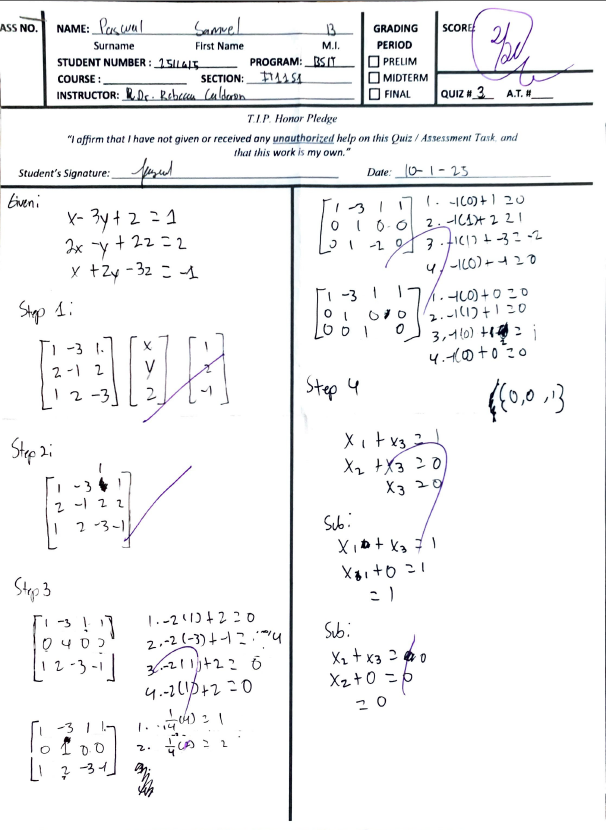 ASS NO.
NAME: Pascual Samuel B
Surname First Name M.I.
STUDENT NUMBER: 2511415 PROGRAM: BSIT
COURSE: SECTION:
INSTRUCTOR: Dr. Rebecca Calderon
GRADING PERIOD
PRELIM
MIDTERM
FINAL
SCORE
QUIZ # 3 A.T. #
T.I.P. Honor Pledge
"I affirm that I have not given or received any unauthorized help on this Quiz / Assessment Task and
that this work is my own."
Student's Signature: Date: 10-1-25
Given:
x- 3y + z = 1
2x -y + 2z = 2
x + 2y - 3z = -1
Step 1:
1 -3 1 x 1
2 -1 2 y 2
1 2 -3 z -1
Step 2:
1 -3 1 1
2 -1 2 2
1 2 -3 -1
Step 3
1 -3 1 1
0 4 0 0
1 2 -3 -1
1. -2(1) + 2 = 0
2. -2(-3) + -1 =
3. -2(1) + 2 = 0
4. -2(1) + 2 = 0
1 -3 1 1
0 1 0 0
1 2 -3 -1
1. 1/4(4) = 1
2.
1 -3 1 1
0 1 0 0
0 1 -2 0
1. -1(0) + 1 = 0
2. -1(1) + 2 = 1
3. -1(1) + -3 = -2
4. -1(0) + -1 = 0
1 -3 1 1
0 1 0 0
0 0 1 0
1. -1(0) + 0 = 0
2. -1(1) + 1 = 0
4. -1(0) + 0 = 0
Step 4
{(0,0,1}
x1 + x3 = 1
x2 + x3 = 0
x3 = 0
Sub:
x1 + x3 = 1
x1 + 0 = 1
= 1
Sub:
x2 + x3 = 0
x2 + 0 = 0
= 0